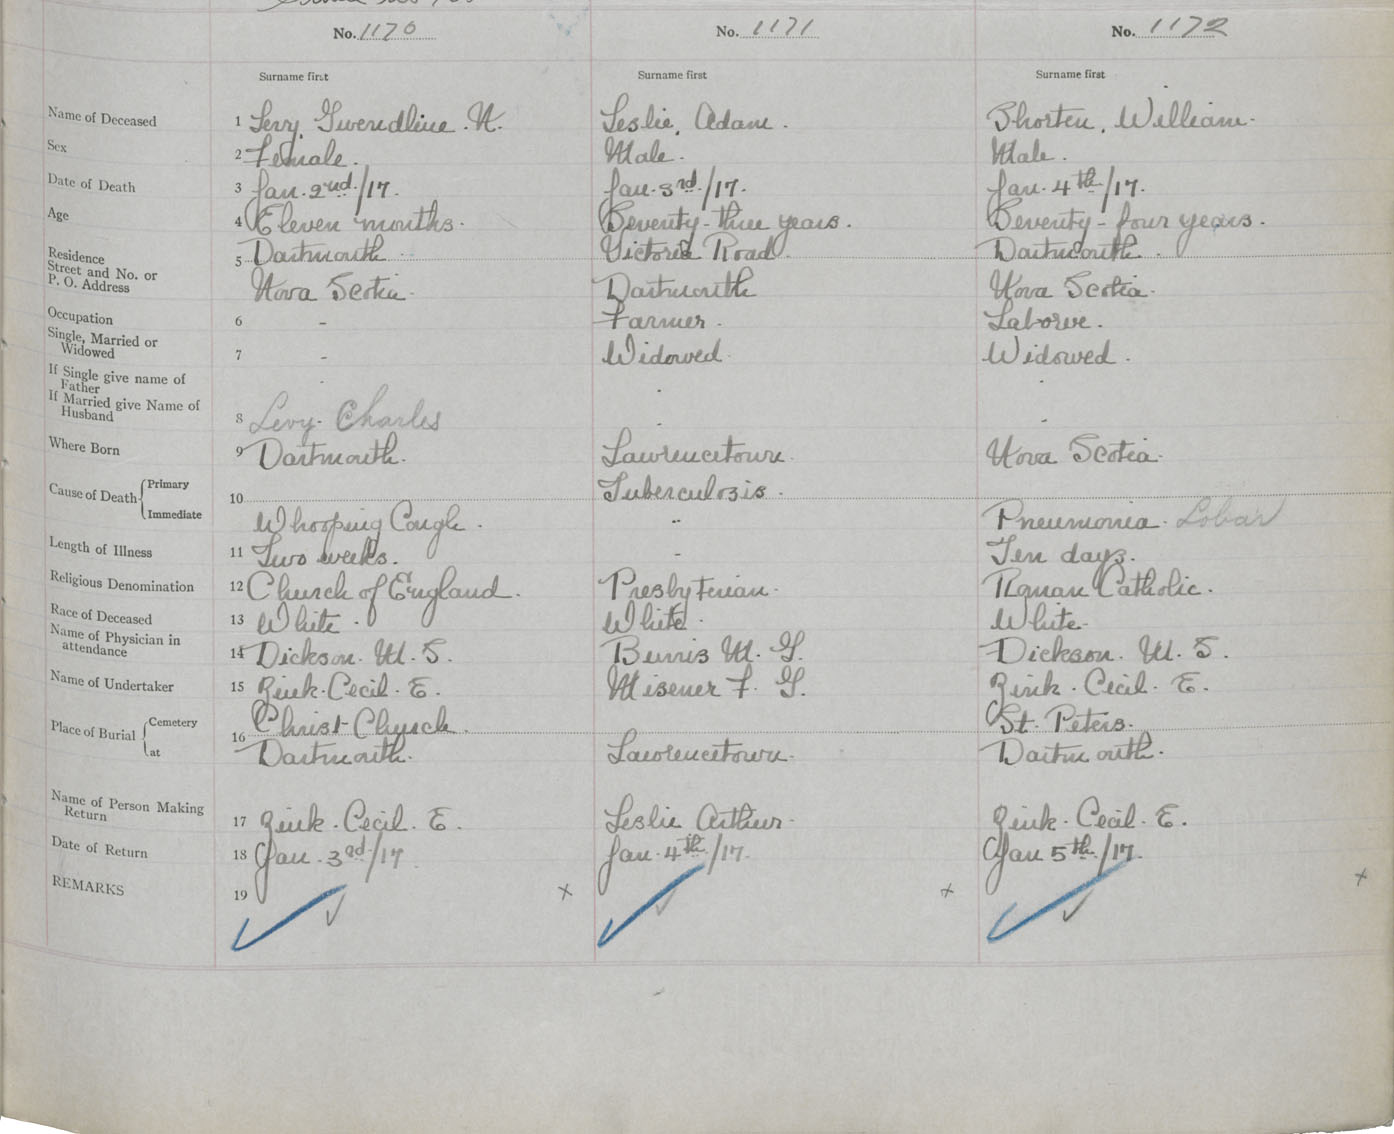 No. 1170 No. 1171 No. 1172
Surname first Surname first Surname first
Name of Deceased 1 Levy, Gwendline. N. Leslie, Adam. Shorten, William.
Sex 2 Female. Male. Male.
Date of Death 3 Jan. 2nd/17. Jan. 3rd/17. Jan. 4th/17.
Age 4 Eleven months. Seventy-three years. Seventy-four years.
Residence 5 Dartmouth Victoria Road. Dartmouth.
Street and No. or
P. O. Address Nova Scotia. Dartmouth Nova Scotia.
Occupation 6 - Farmer. Laborer.
Single, Married or
Widowed 7 - Widowed. Widowed.
If Single give name of
Father
If Married give Name of
Husband 8 Levy. Charles
Where Born 9 Dartmouth. Lawrencetown. Nova Scotia.
Cause of Death Primary 10 Tuberculosis.
Immediate Whooping Cough. " Pneumonia. Lobar
Length of Illness 11 Two weeks. - Ten days.
Religious Denomination 12 Church of England. Presbyterian. Roman Catholic.
Race of Deceased 13 White. White. White.
Name of Physician in
attendance 14 Dickson. M. S. Burris M. G. Dickson. M. S.
Name of Undertaker 15 Zink. Cecil. E. Misener F. G. Zink. Cecil. E.
Place of Burial Cemetery 16 Christ Church. St. Peters.
at Dartmouth. Lawrencetown. Dartmouth.
Name of Person Making
Return 17 Zink. Cecil. E. Leslie Arthur. Zink. Cecil. E.
Date of Return 18 Jan. 3rd/17 Jan. 4th/17. Jan 5th/17.
REMARKS 19 x x x